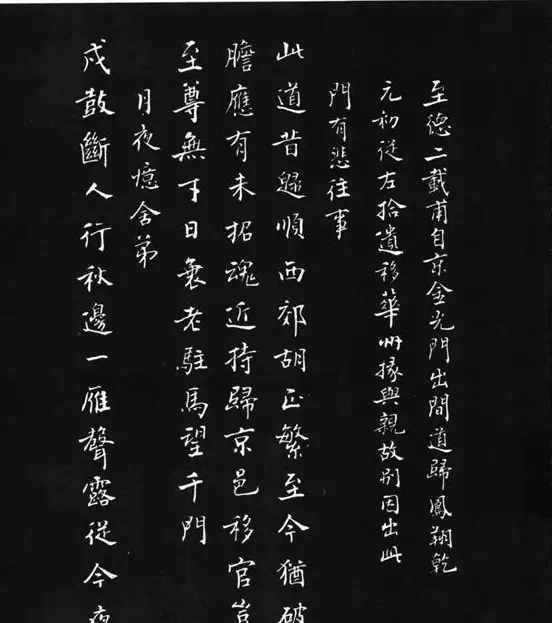 至德二載甫自京金光門出間道歸鳳翔乾
元初從左拾遺移華州掾與親故別因出此
門有悲往事
此道昔歸順西郊胡正繁至今猶破
膽應有未招魂近持歸京邑移官豈
至尊無才日衰老駐馬望千門
月夜憶舍弟
戍鼓斷人行秋邊一雁聲露從今夜